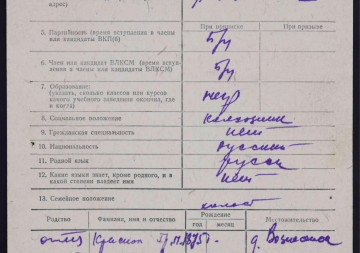 адрес)
При приписке При призыве
5. Партийность (время вступления в члены
или кандидаты ВКП(б)
б/п
6. Член или кандидат ВЛКСМ (время вступ-
ления в члены или кандидаты ВЛКСМ)
б/п
7. Образование:
(указать, сколько классов или курсов
какого учебного заведения окончил, где
и когда)
8. Социальное положение
колхозник
9. Гражданская специальность
нет
10. Национальность
русский
11. Родной язык
русск
12. Какие языки знает, кроме родного, и в
какой степени владеет ими
нет
13. Семейное положение
холост
Родство Фамилия, имя и отчество Рождение Местожительство
год месяц
отец 1875